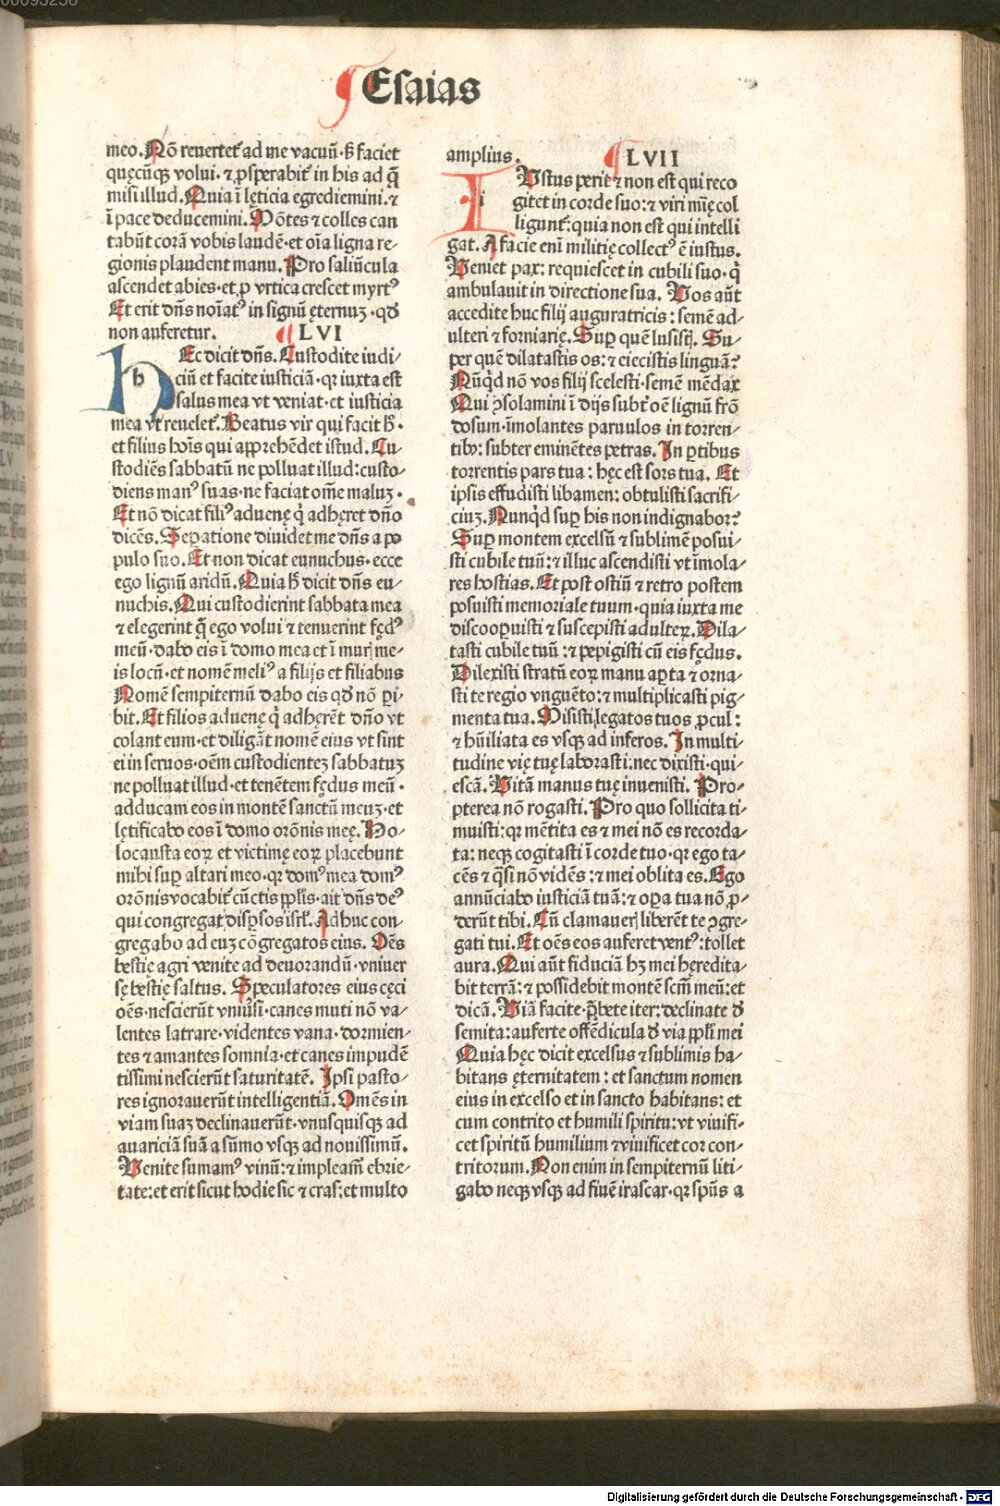 Esaias
meo. Nõ reuertet᷑ ad me vacuũ · s̃ faciet
quęcũqꝫ volui · ⁊ ꝓsperabit᷑ in his ad q̃
misi illud. Quia ĩ leticia egrediemini · ⁊
ĩ pace deducemini. Mõtes ⁊ colles can
tabũt corã vobis laudẽ · et oĩa ligna re-
gionis plaudent manu. Pro saliũcula
ascendet abies · et ꝓ vrtica crescet myrtꝰ
Et erit dñs noĩatꝰ in signũ ęternuꝫ · qđ
non auferetur. LVI
Hec dicit dñs. Custodite iudi-
ciũ et facite iusticiã · qꝛ iuxta est
salus mea vt veniat · et iusticia
mea vt reuelet᷑. Beatus vir qui facit h̃ ·
et filius hoĩs qui apprehẽdet istud. Cu-
stodiẽs sabbatũ ne polluat illud : custo-
diens manꝰ suas · ne faciat om̃e maluꝫ ·
Et nõ dicat filiꝰ aduenę q̇ adhęret dño
dicẽs. Sepatione diuidet me dñs a po
pulo suo. Et non dicat eunuchus · ecce
ego lignũ aridũ. Quia h̃ dicit dñs eu-
nuchis. Qui custodierint sabbata mea
⁊ elegerint q̃ ego volui ⁊ tenuerint fędꝰ
meũ · dabo eis ĩ domo mea et ĩ muris me-
is locũ · et nomẽ meliꝰ a filijs et filiabus
Nomẽ sempiternũ dabo eis qđ nõ ꝑi-
bit. Et filios aduenę q̇ adhęrẽt dño vt
colant eum · et diligãt nomẽ eius vt sint
ei in seruos · oẽm custodienteꝫ sabbatuꝫ
ne polluat illud · et tenẽtem fędus meũ ·
adducam eos in montẽ sanctũ meuꝫ · et
lętificabo eos ĩ domo orõnis meę. Ho-
locausta eoꝝ et victimę eoꝝ placebunt
mihi suꝑ altari meo · qꝛ domꝰ mea domꝰ
orõnis vocabit᷑ cũctis ppl̃is · ait dñs deꝰ
qui congregat disꝑsos isrl̃. Adhuc con-
gregabo ad euꝫ cõgregatos eius. Oẽs
bestię agri venite ad deuorandũ · vniuer
sę bestię saltus. Speculatores eius cęci
oẽs · nescierũt vniũsi · canes muti nõ va-
lentes latrare · videntes vana · dormien-
tes ⁊ amantes somnia · et canes impudẽ
tissimi nescierũt saturitatẽ. Ipsi pasto-
res ignorauerũt intelligentiã. Omẽs in
viam suaꝫ declinauerũt · vnusquisqꝫ ad
auariciã suã a sũmo vsqꝫ ad nouissimũ.
Venite sumamꝰ vinũ : ⁊ impleam̃ ebrie-
tate : et erit sicut hodie sic ⁊ cras : et multo
amplius. LVII
Iustus perit ⁊ non est qui reco
gitet in corde suo : ⁊ viri mię col
ligunt᷑ : quia non est qui intelli
gat. A facie eni militię collectꝰ ẽ iustus.
Veniet pax : requiescet in cubili suo · q̇
ambulauit in directione sua. Vos aũt
accedite huc filij auguratricis : semẽ ad-
ulteri ⁊ forniarię. Suꝑ quẽ lusistis. Su-
per quẽ dilatastis os : ⁊ eiecistis linguã?
Nũqd nõ vos filij scelesti · semẽ mẽdax
Qui ↄsolamini ĩ dijs subt᷑ oẽ lignũ frõ
dosum · im̃olantes paruulos in torren-
tibꝰ : subter eminẽtes petras. In ꝑtibus
torrentis pars tua : hęc est sors tua. Et
ipsis effudisti libamen : obtulisti sacrifi-
ciuꝫ. Nunqd suꝑ his non indignabor?
Suꝑ montem excelsũ ⁊ sublimẽ posui-
sti cubile tuũ : ⁊ illuc ascendisti vt im̃ola-
res hostias. Et post ostiũ ⁊ retro postem
posuisti memoriale tuum · quia iuxta me
discooꝑuisti ⁊ suscepisti adulteꝝ. Dila-
tasti cubile tuũ : ⁊ pepigisti cũ eis fędus.
Dilexisti stratũ eoꝝ manu aꝑta ⁊ orna-
sti te regio vnguẽto : ⁊ multiplicasti pig-
menta tua. Misisti legatos tuos ꝓcul :
⁊ hũiliata es vsqꝫ ad inferos. In multi-
tudine vię tuę laborasti : nec dixisti · qui-
escã. Vitã manus tuę inuenisti. Pro-
pterea nõ rogasti. Pro quo sollicita ti-
muisti : qꝛ mẽtita es ⁊ mei nõ es recorda-
ta : neqꝫ cogitasti ĩ corde tuo · qꝛ ego ta-
cẽs ⁊ q̃si nõ vidẽs : ⁊ mei oblita es. Ego
annũciabo iusticiã tuã : ⁊ oꝑa tua nõ ꝓ-
derũt tibi. Cũ clamaueris liberẽt te ↄgre-
gati tui. Et oẽs eos auferet ventꝰ : tollet
aura. Qui aũt fiduciã hꝫ mei hęredita-
bit terrã : ⁊ possidebit montẽ scm̃ meũ : et
dicã. Viã facite · p̃bete iter : declinate đ
semita : auferte offẽdicula đ via ppl̃i mei
Quia hęc dicit excelsus ⁊ sublimis ha-
bitans ęternitatem : et sanctum nomen
eius in excelso et in sancto habitans : et
cum contrito et humili spiritu : vt viuifi-
cet spiritũ humilium ⁊ viuificet cor con-
tritorum. Non enim in sempiternũ liti-
gabo neqꝫ vsqꝫ ad finẽ irascar · qꝛ spũs a
Digitalisierung gefördert durch die Deutsche Forschungsgemeinschaft - DFG